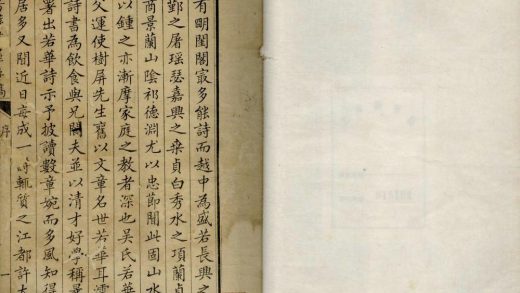 有明閨閣㝡多能詩而越中為盛若長興之
鄞之屠瑶瑟嘉興之桒貞白秀水之項蘭貞
商景蘭山陰祁德淵尤以忠節聞此固山水
以鍾之亦漸摩家庭之教者深也吳氏若華
父運使樹屏先生舊以文章名世若華耳濡
詩書為飲食與兄闗夫並以清才好學稱
署出若華詩示予披讀數章婉而多風知得
居多又聞近日每成一詩輒質之江都許
稿 序 一